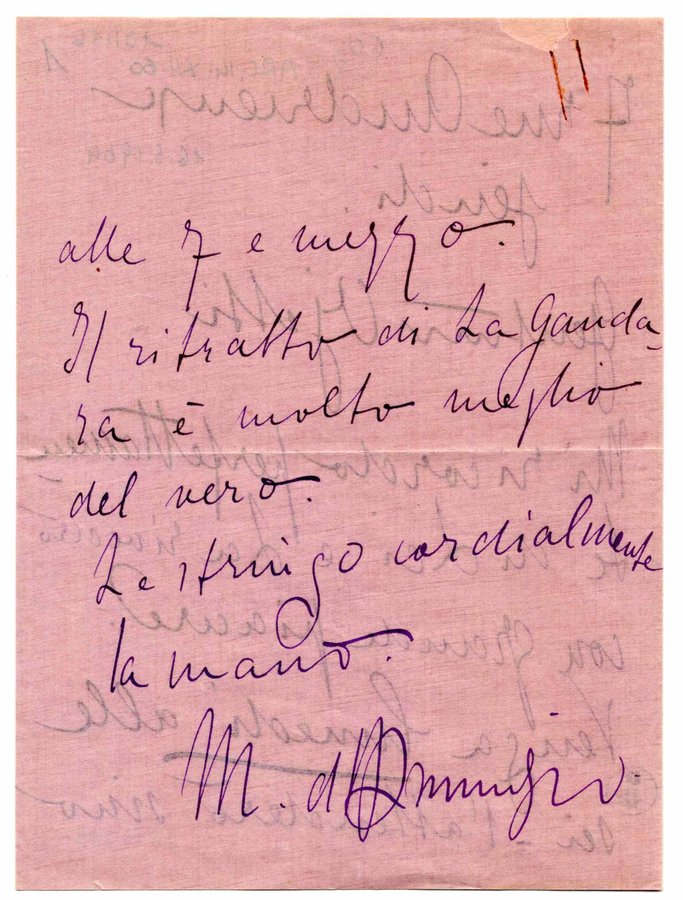 alle 7 e mezzo.
Il ritratto di La Ganda-
ra è molto meglio
del vero.
Le stringo cordialmente
la mano.
M. d'Annunzio.